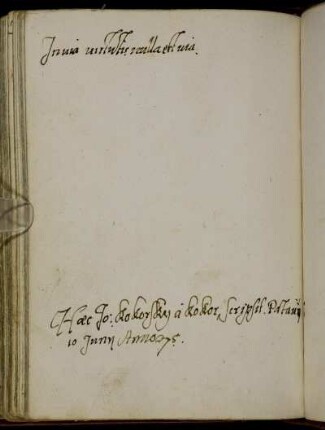 Inuia uirtuti nulla est uia.
Haec Jo: Kokorskÿ à Kokor, scripsit Patauÿ
10 Junÿ Anno 75.